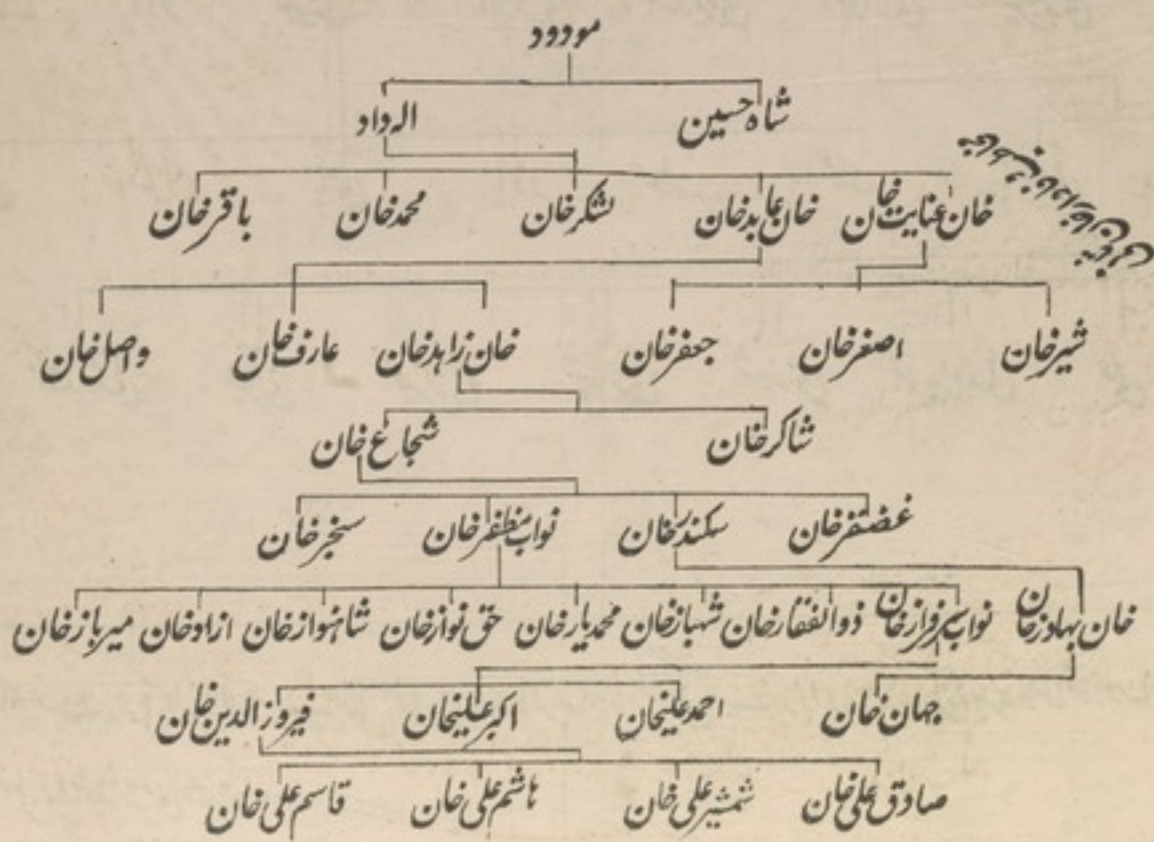 مودود
شاہ حسین الہ داد
خان عنایت خان خان عابد خان لشکر خان محمد خان باقر خان
شیر خان اصغر خان جعفر خان خان زاہد خان عارف خان واصل خان
شاکر خان شجاع خان
غضنفر خان سکندر خان نواب مظفر خان سنجر خان
خان بہادر خان نواب سرفراز خان ذوالفقار خان شہباز خان محمد یار خان حق نواز خان شاہنواز خان ازاد خان میر باز خان
جہان خان احمد علیخان اکبر علیخان فیروز الدین خان
صادق علی خان شمشیر علی خان ہاشم علی خان قاسم علی خان